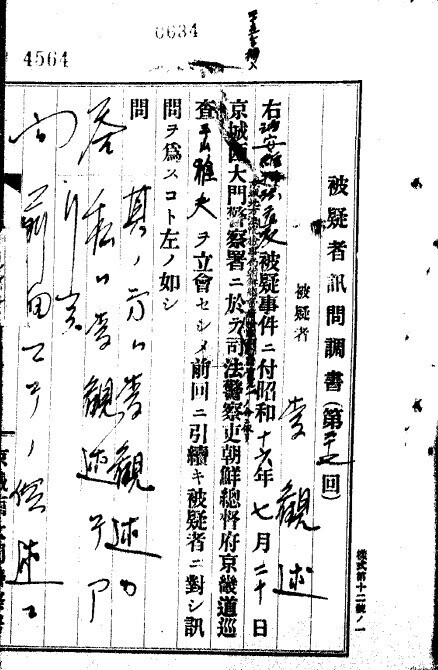 0634
4564
樣式第十二號ノ一
被疑者訊問調書(第 回)
被疑者 李觀述
右治安維持法違反被疑事件ニ付昭和十六年七月二十日
京城西大門警察署ニ於テ司法警察吏朝鮮總督府京畿道巡
査 雅夫ヲ立會セシメ前回ニ引續キ被疑者ニ對シ訊
問ヲ爲スコト左ノ如シ
問 其ノ方ハ李觀述カ
答 私ハ李觀述テア
問 前回マテノ供述ニ